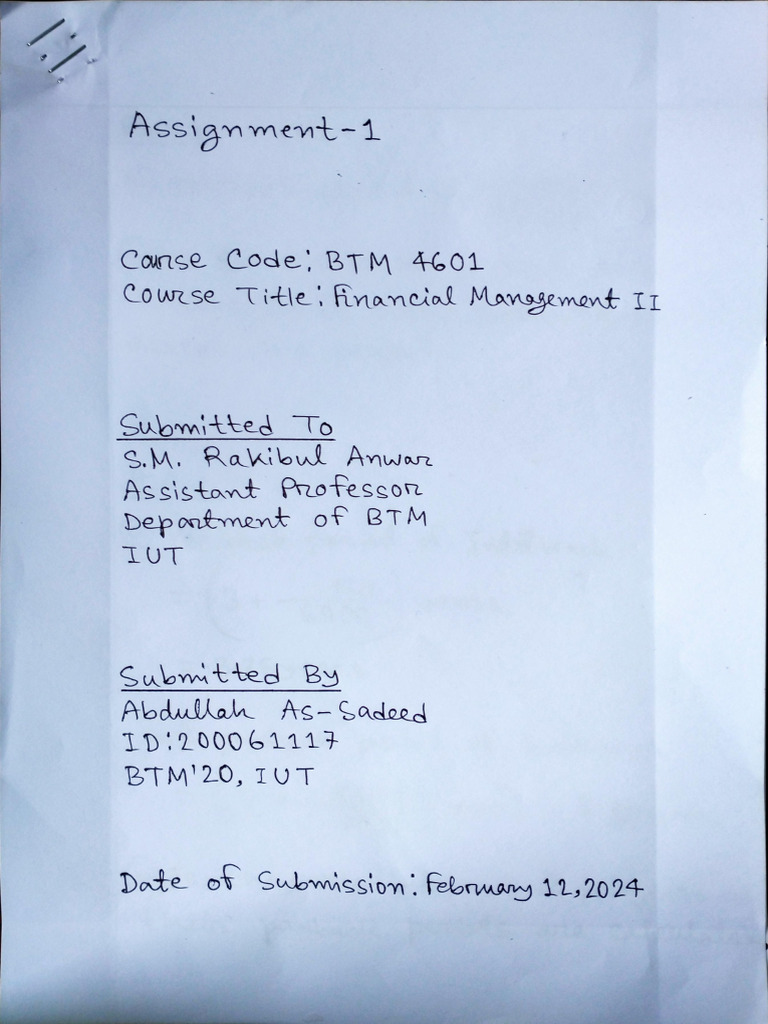 Assignment-1
Course Code: BTM 4601
Course Title: Financial Management II
Submitted To
S.M. Rakibul Anwar
Assistant Professor
Department of BTM
IUT
Submitted By
Abdullah As-Sadeed
ID:200061117
BTM'20, IUT
Date of Submission: February 12, 2024